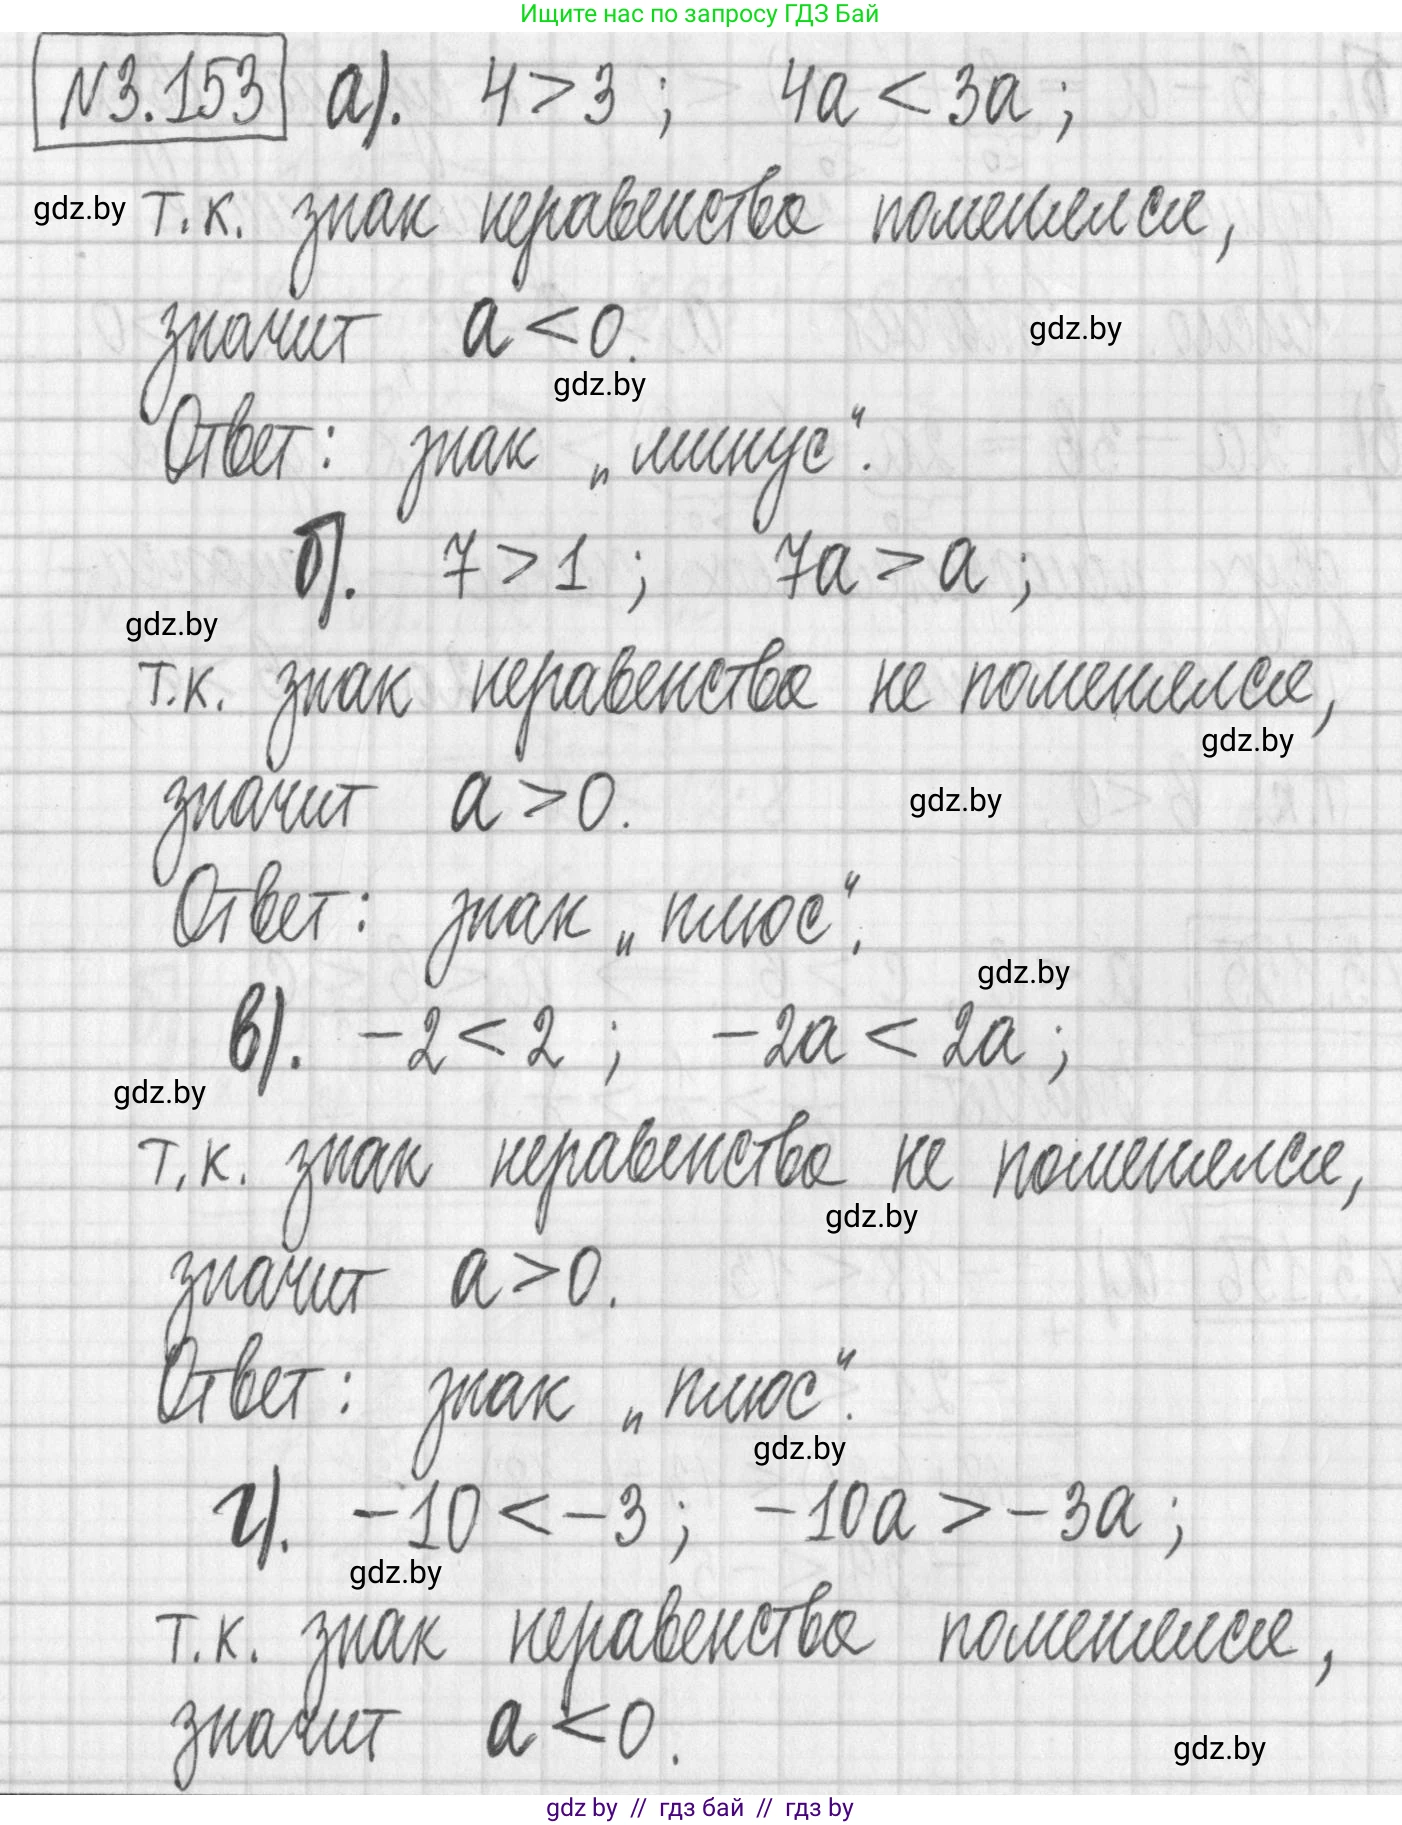 Ищите нас по запросу ГДЗ Бай
N3.153 а). 4 > 3 ; 4а < 3а ;
gdz.by т.к. знак неравенства поменялся,
значит а < 0. gdz.by
gdz.by
Ответ: знак „минус".
б). 7 > 1 ; 7а > а ;
gdz.by
т.к. знак неравенства не поменялся,
gdz.by
значит а > 0. gdz.by
Ответ: знак „плюс".
gdz.by
в). -2 < 2 ; -2а < 2а ;
gdz.by
т.к. знак неравенства не поменялся,
gdz.by
значит а > 0.
Ответ: знак „плюс".
gdz.by
г). -10 < -3 ; -10а > -3а ;
gdz.by
т.к. знак неравенства поменялся,
значит а < 0.
gdz.by
gdz by // гдз бай // гдз by